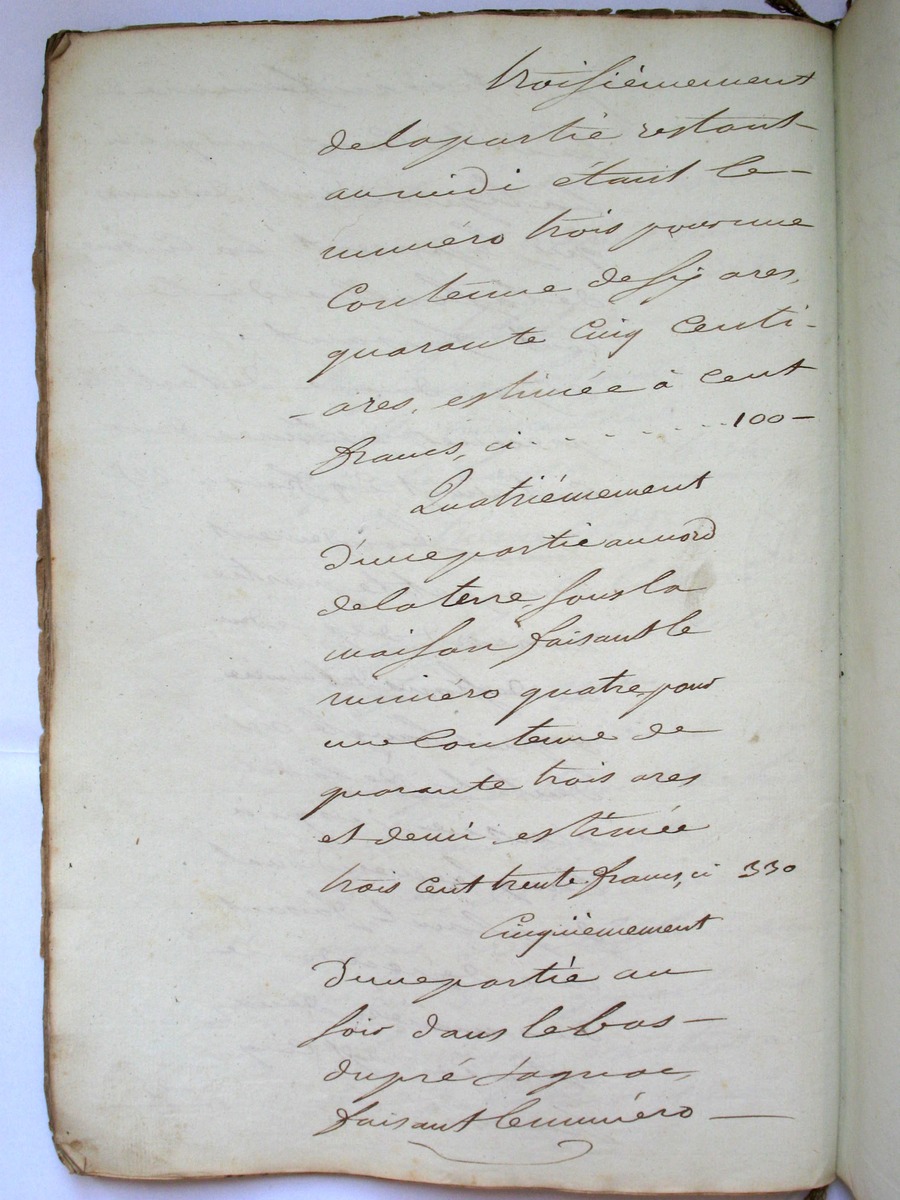 troisiémement
de la partie restant
au midi étant le -
numéro trois pour une
Contenue de six ares,
quarante Cinq Centi-
- ares, estimée à Cent
francs, ci . . . . . . . . 100 -
Quatriémement
d'une partie au nord
de la terre, sous la
maison faisant le
numéro quatre, pour
une Contenue de
quarante trois ares
et demi estimée
trois Cent trente francs, ci 330
Cinquiémement
d'une partie au
soir dans le bas -
du pré
faisant le numéro -